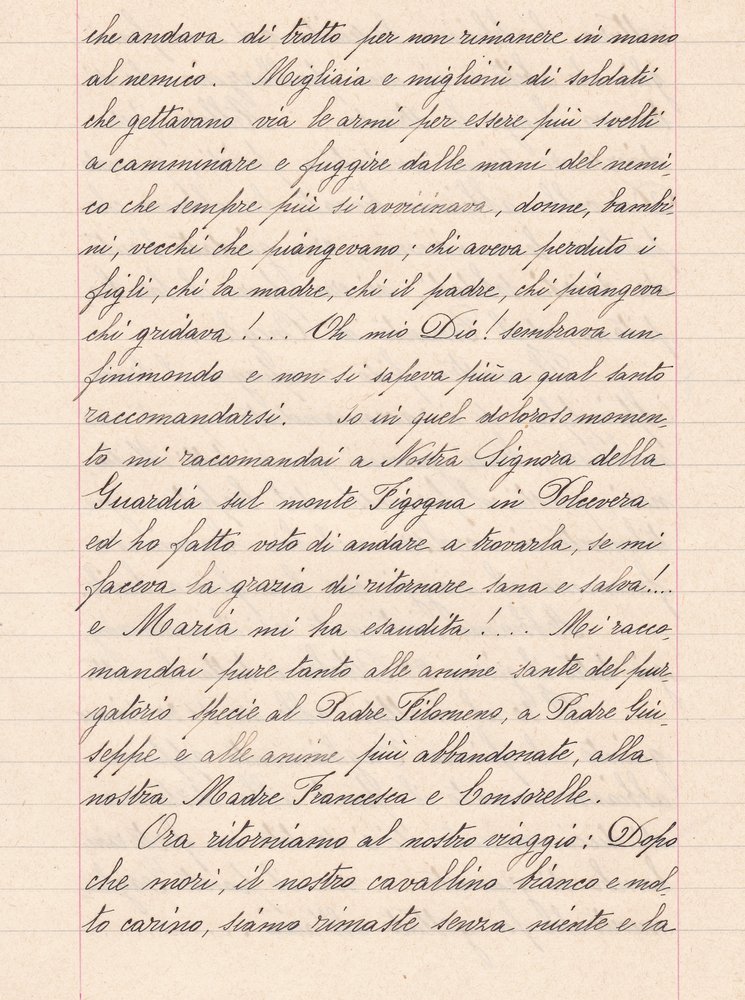 che andava di trotto per non rimanere in mano
al nemico. Migliaia e miglioni di soldati
che gettavano via le armi per essere più svelti
a camminare e fuggire dalle mani del nemi-
co che sempre più si avvicinava, donne, bambi-
ni, vecchi che piangevano; chi aveva perduto i
figli, chi la madre, chi il padre, chi piangeva
chi gridava!.... Oh mio Dio! sembrava un
finimondo e non si sapeva più a qual santo
raccomandarsi. Io in quel doloroso momen-
to mi raccomandai a Nostra Signora della
Guardia sul monte Figogna in Polcevera
ed ho fatto voto di andare a trovarla, se mi
faceva la grazia di ritornare sana e salva!....
e Maria mi ha esaudita!.... Mi racco-
mandai pure tanto alle anime sante del pur-
gatorio specie al Padre Filomeno, a Padre Giu-
seppe e alle anime più abbandonate, alla
nostra Madre Francesca e Consorelle.
Ora ritorniamo al nostro viaggio: Dopo
che morì, il nostro cavallino bianco e mol-
to carino, siamo rimaste senza niente e la